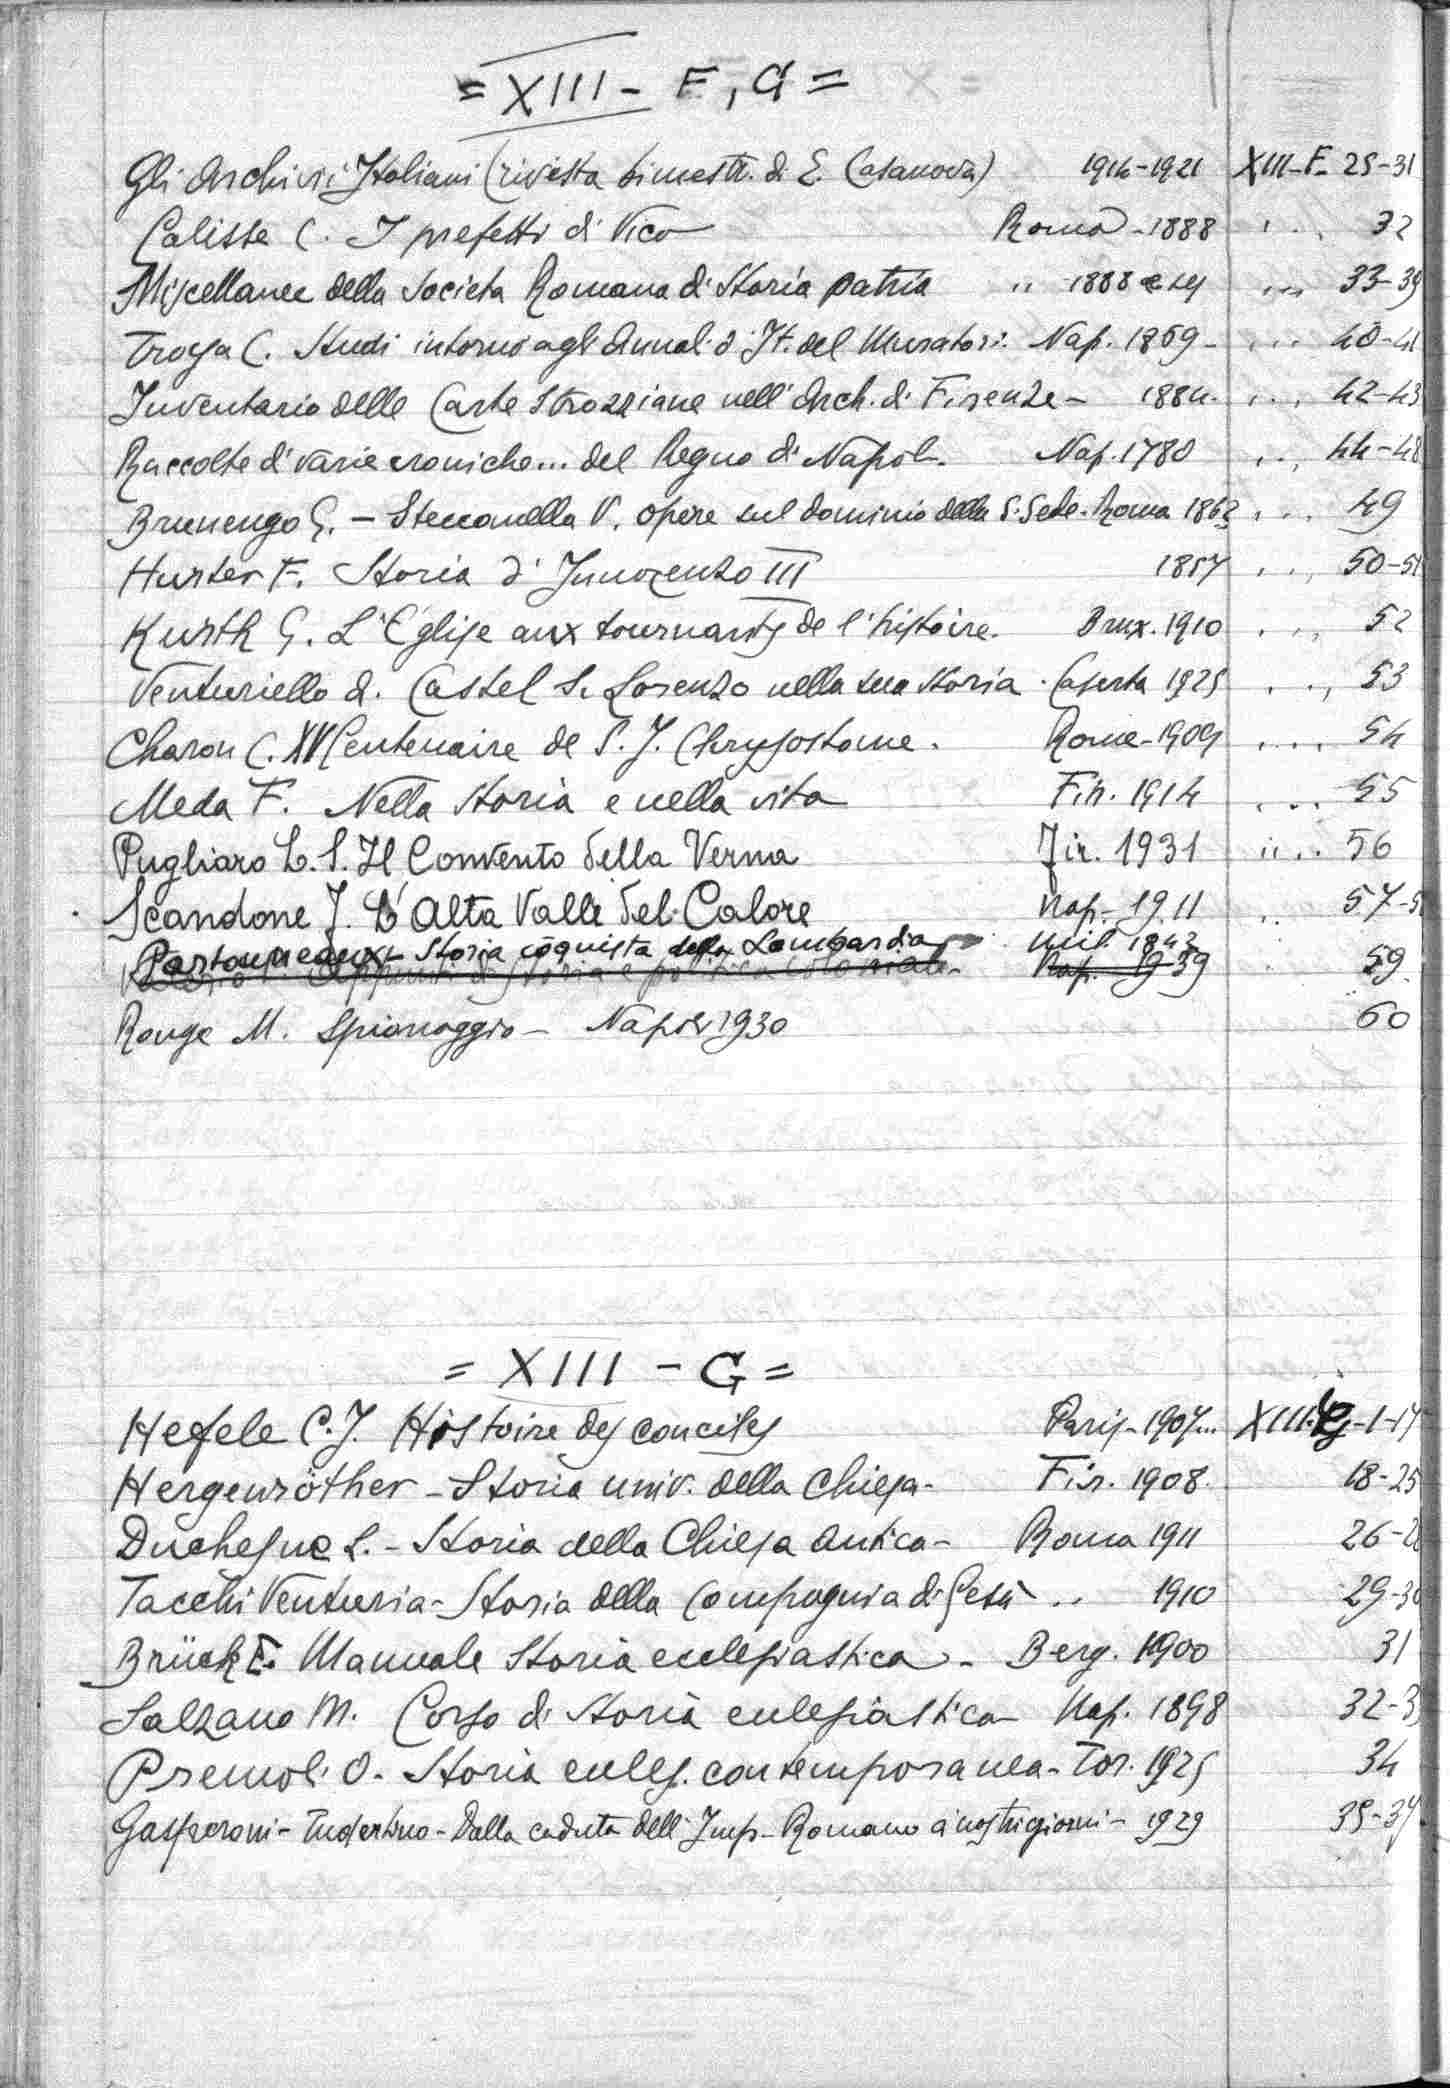 = XIII - F, G =
Gli Archivi Italiani (rivista bimestr. di E. Casanova) 1914-1921 XIII-F- 25-31
Calisse C. I prefetti di Vico Roma - 1888 32
Miscellanee della Società Romana di Storia patria " 1888 e sg 33-39
Troya C. Studi intorno agli Annali d'It. del Muratori. Nap. 1869 - 40-41
Inventario delle Carte Strozziane nell'Arch. di Firenze - 1884. 42-43
Raccolte di varie croniche... del Regno di Napoli. Nap. 1780 44-48
Brunengo G. - Steccanella V. opere sul dominio della S. Sede - Roma 1862 49
Hurter F. Storia d'Innocenzo III 1857 50-51
Kurth G. L'Eglise aux tournants de l'histoire. Brux. 1910 52
Venturiello A. Castel S. Lorenzo nella sua storia - Caserta 1925 53
Charon C. XV Centenaire de S. J. Chrysostome. Rome - 1909 54
Meda F. Nella storia e nella vita Fir. 1914 55
Pugliaro L. S. Il Convento della Verna Fir. 1931 56
Scandone F. L'Alta Valle del Calore Nap. - 1911 57-5
Partouneaux - Storia cõquista della Lombardia Mil. 1842
Appunti di storia e politica coloniale - Nap. 1939 59
Rouge M. Spionaggio - Napoli 1930 60
= XIII - G =
Hefele C. J. Histoire des conciles Paris - 1907... XIII. G - 1-17
Hergenröther - Storia univ. della Chiesa - Fir. 1908. 18-25
Duchesne L. - Storia della Chiesa antica - Roma 1911 26-2
Tacchi Venturia - Storia della Compagnia di Gesù " 1910 29-30
Brück E. Manuale Storia ecclesiastica - Berg. 1900 31
Salzano M. Corso di Storia ecclesiastica Nap. 1898 32-3
Premoli O. Storia eccles. contemporanea - Tor. 1925 34
Gasperoni - Tudertino - Dalla caduta dell'Imp. Romano a' nostri giorni - 1929 35-37